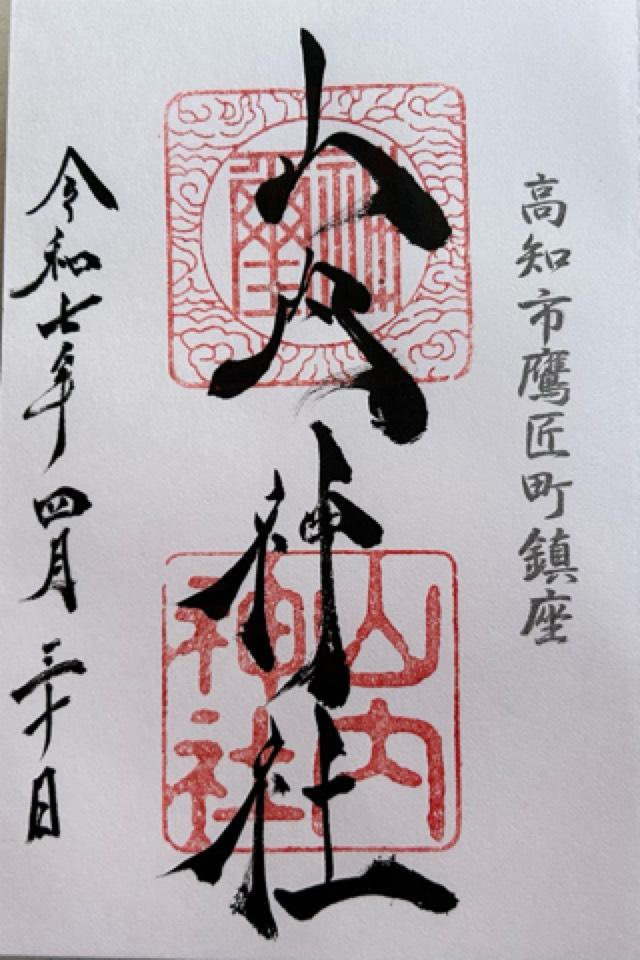 高知市鷹匠町鎮座
山内神社
山内
神社
令和七年四月三十日